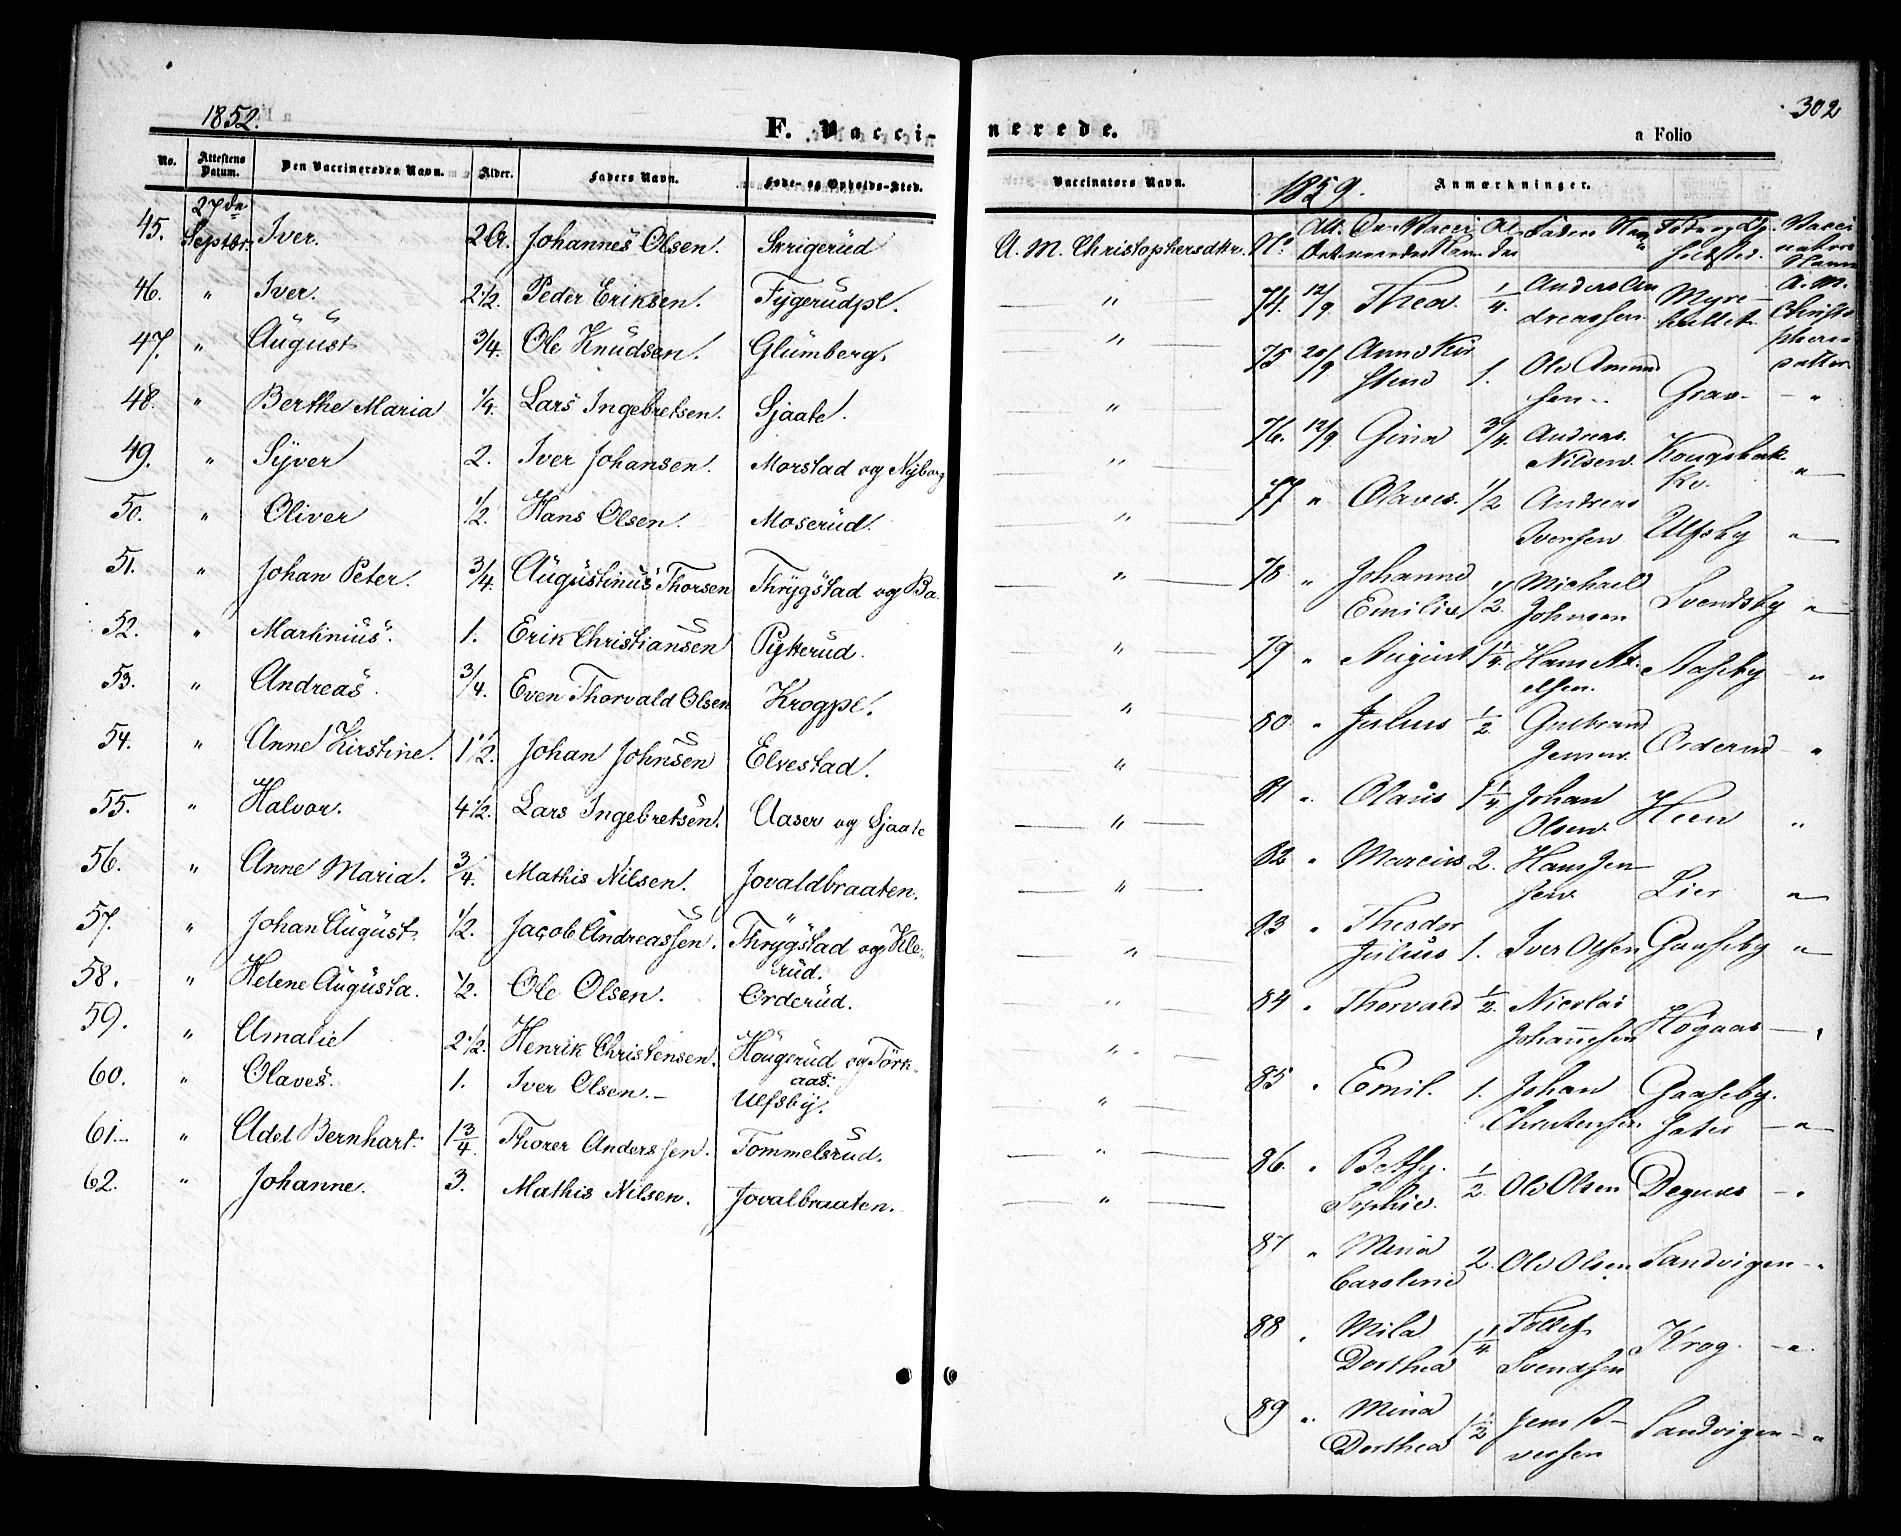 302
1852.
F. Vacci-
nerede.
a Folio
No. Attestens Datum. Den Vaccineredes Navn. Alder. Faders Navn. Føde- og Opholds-Sted.
Vaccinators Navn. 1859. Anmærkninger.
45. 27de Septbr. Iver. 2 Johannes Olsen. Skrigerud A. M. Christophersdtr.
46. " Iver. 2 1/2. Peder Eriksen. Fygerudpl. "
47. " August 3/4. Ole Knudsen. Glumberg. "
48. " Berthe Maria 1/4. Lars Ingebretsen. Sjaate. "
49. " Syver 2. Iver Johansen. Morstad og Nyborg "
50. " Oliver 1/2. Hans Olsen. Moserud. "
51. " Johan Peter. 3/4. Augustinus Thorsen Thrygstad og Ba. "
52. " Martinius. 1. Erik Christiansen Pykerud. "
53. " Andreas. 3/4. Even Thorvald Olsen Krogpl. "
54. " Anne Kirstine. 1 1/2. Johan Johnsen Elvestad. "
55. " Halvor. 4 1/2. Lars Ingebretsen. Aaser og Sjaate "
56. " Anne Maria. 3/4. Mathis Nilsen. Jovaldbraaten. "
57. " Johan August. 1/2. Jacob Andreassen. Thrygstad og Kle-
rud. "
58. " Helene Augusta. 1/2. Ole Olsen. Orderud. "
59. " Amalie 2 1/2. Henrik Christensen. Hougerud og Tørk-
aas. "
60. " Olaves. 1. Iver Olsen. - Ulfsby. "
61. - " Adel Bernhart. 1 3/4 Thorer Anderssen. Tommelsrud. "
62. " Johanne. 3. Mathis Nilsen. Jovalbraaten. "
No
74. 12/9 Thea. 1/4. Anders An
dreassen Myre-
hullet. A. M.
Christo
phers
datter.
75 20/9 Anne Kir
stine 1. Ole Amund
sen - Grav - "
76. 12/9 Gina 3/4. Andreas
Nilsen. "
77 " Olaves. 1/2 Andreas
Iversen Ulfsby "
78 " Johanne
Emilie 1/2 Michael
Johnsen Svendsby "
79 " August 1 1/4 Hans Ax
elsen. Aaseby - "
80. " Julius 1/2 Gulbrand
Jensen. Orderud - "
81 " Olaus 1 1/4 Johan
Olsen. Heen "
82 " Marcus 2. Hans Jen
sen. Lier "
83 " Theodor
Julius 1. Iver Olsen Gaaseby "
84 " Thorvald 1/2 Nicolai
Johannesen Høgaas - "
85 " Emil. 1. Johan
Christensen Gaaseby. "
86. " Bethy
Sophie. 1/2. Ole Olsen Degnes - "
87 " Mina
Caroline 2. Ole Olsen Sandvigen - "
88 " Mila
Dorthea 1 1/4 Tollef
Svendsen Krog. - "
89 " Mina
Dorthea 1 1/2 Sandvigen - "